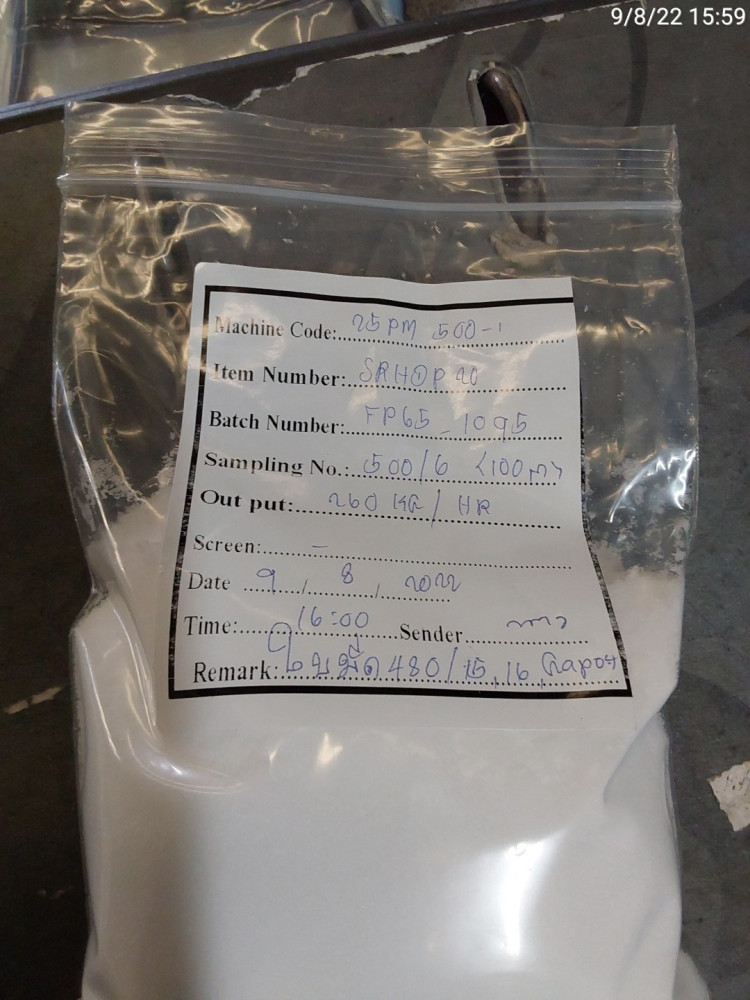 9/8/22 15:59
Machine Code: 25 PM 500-1
Item Number: SRHOP 20
Batch Number: FP65-1095
Sampling No.: 500/6 <100 m>
Out put: 260 KG/HR
Screen: -
Date 9, 8, 2022
Time: 16:00 Sender
Remark: ใบมีด 480/15, 16, Gap04